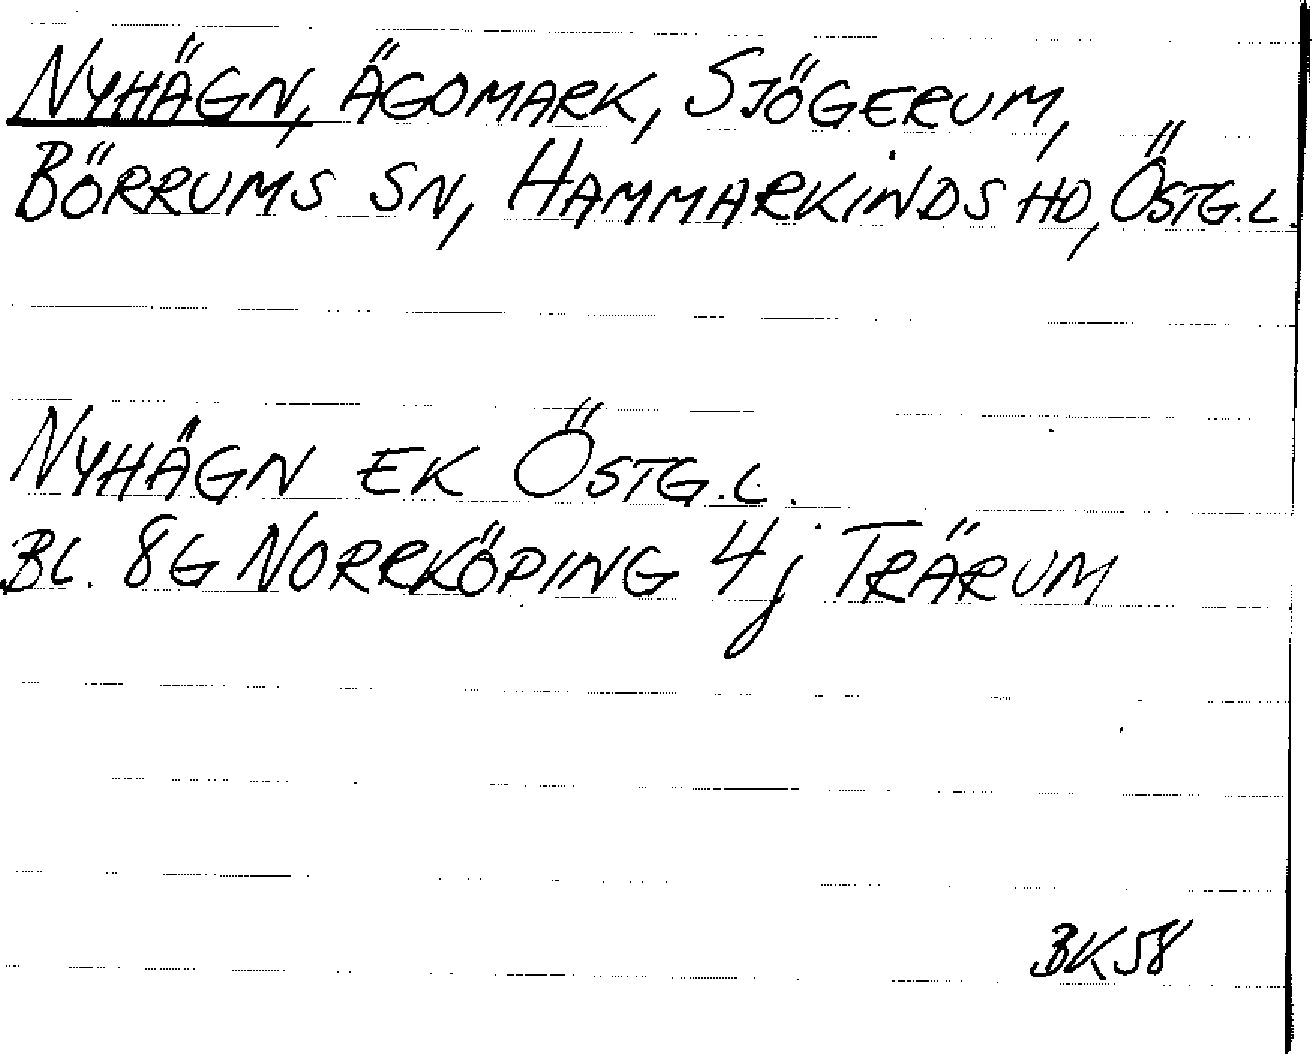 NYHÄGN, ÄGOMARK, SJÖGERUM,
BÖRRUMS SN, HAMMARKINDS HD, ÖSTG.L.
NYHÄGN EK ÖSTG.L.
BL. 8G NORRKÖPING 4j TRÄRUM
BK58